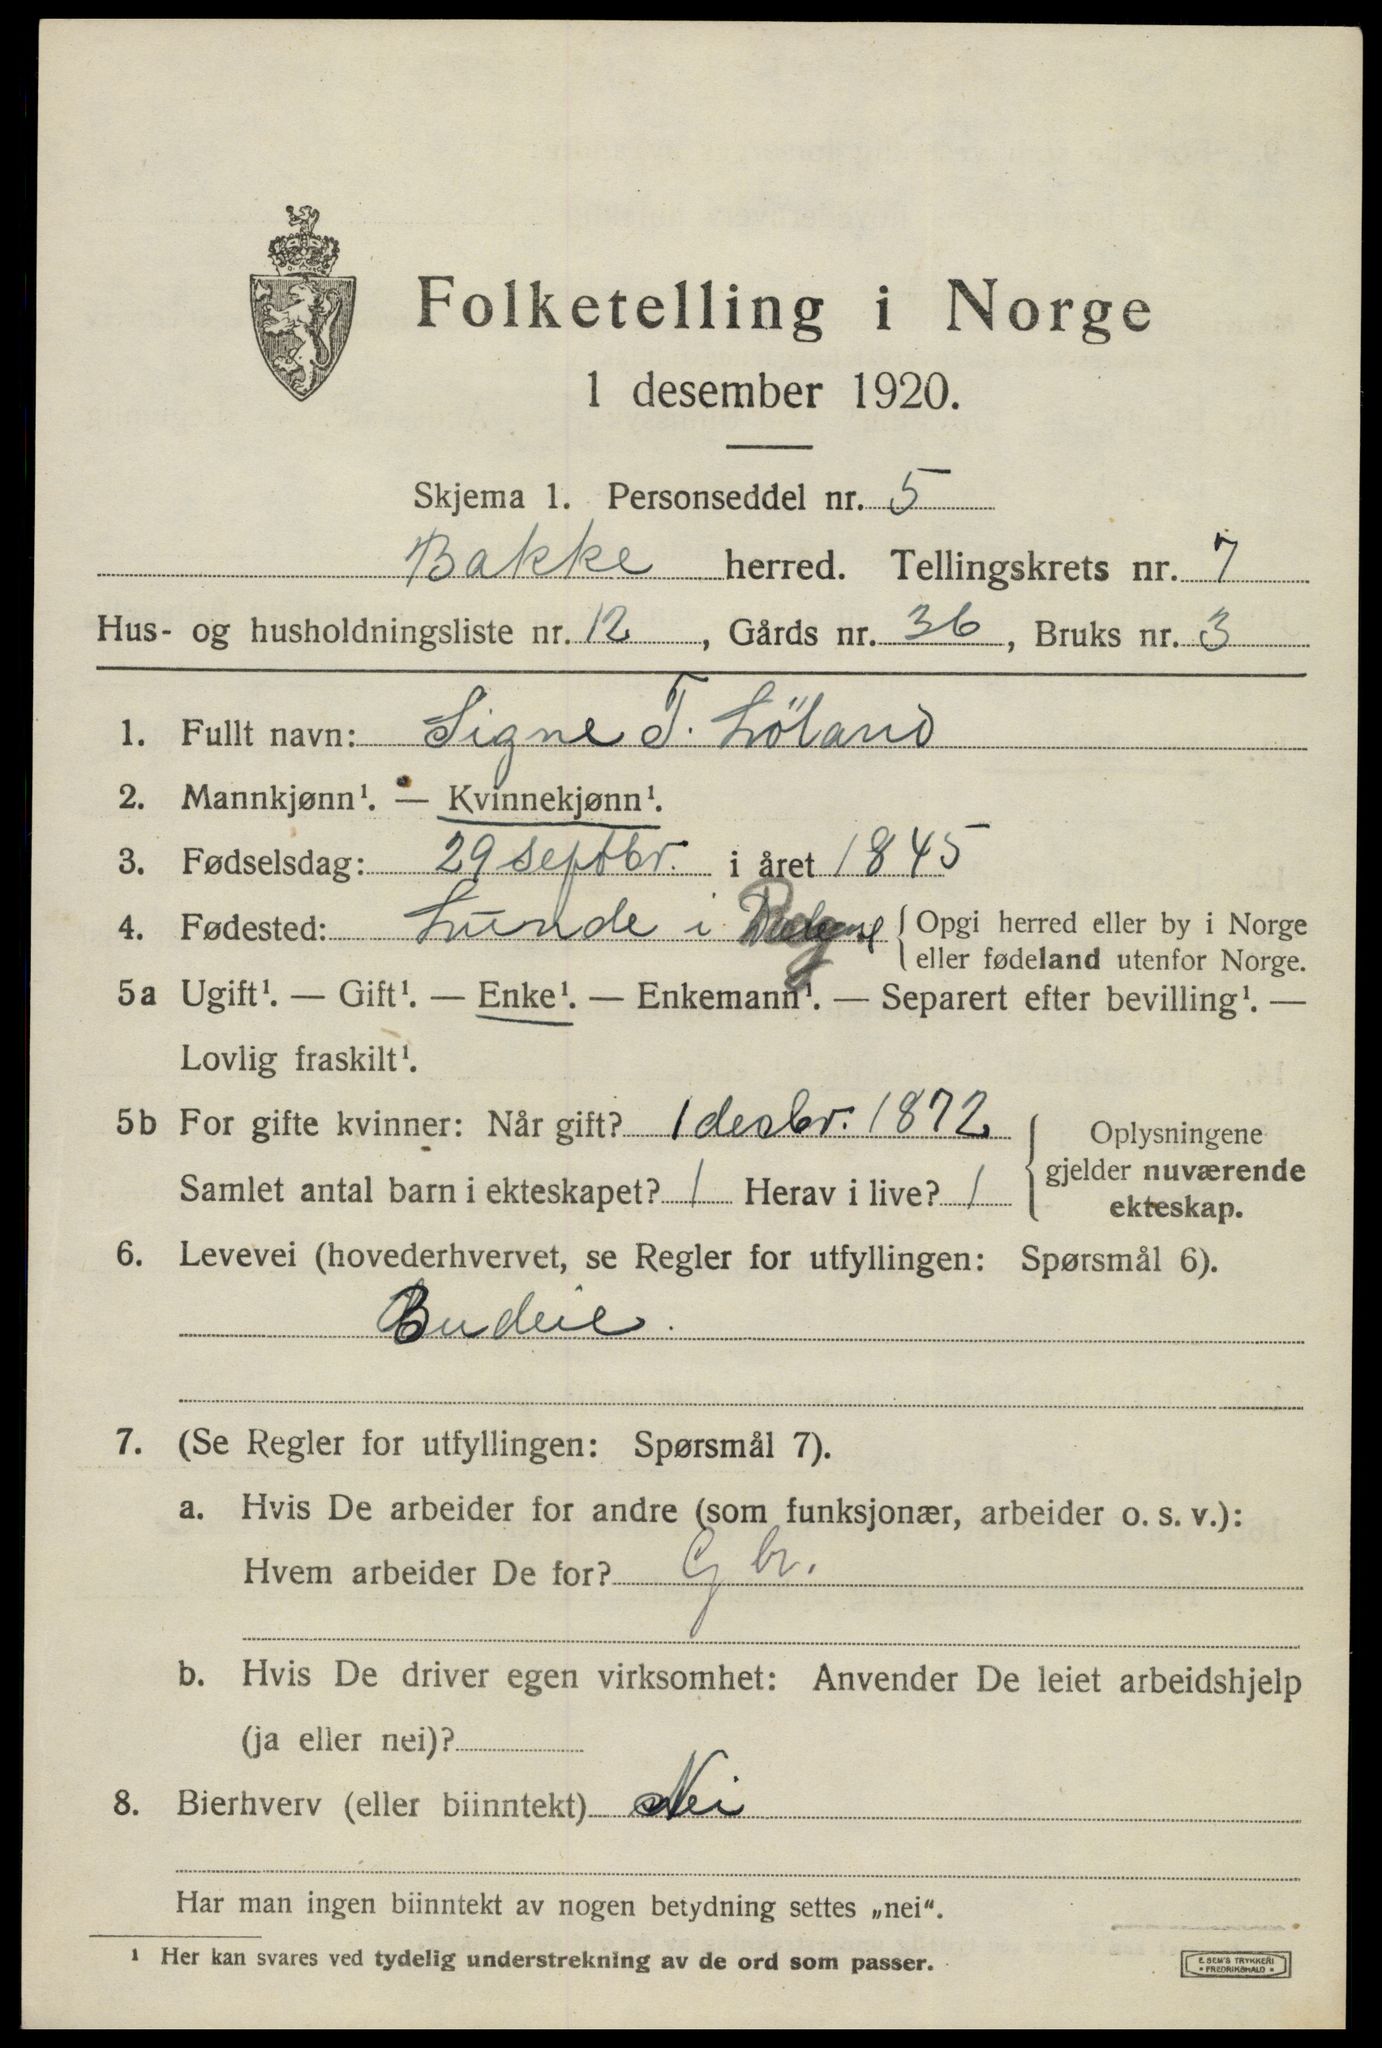 Folketelling i Norge
1 desember 1920.
Skjema 1. Personseddel nr. 5
Bakke herred. Tellingskrets nr. 7
Hus- og husholdningsliste nr. 12, Gårds nr. 36, Bruks nr. 3
1. Fullt navn: Signe T. Löland
2. Mannkjønn¹. — Kvinnekjønn¹.
3. Fødselsdag: 29 septbr. i året 1845
4. Fødested: Lunde i Rog { Opgi herred eller by i Norge
eller fødeland utenfor Norge.
5a Ugift¹. — Gift¹. — Enke¹. — Enkemann¹. — Separert efter bevilling¹. —
Lovlig fraskilt¹.
5b For gifte kvinner: Når gift? 1 desbr. 1872
Samlet antal barn i ekteskapet? 1 Herav i live? 1
Oplysningene
gjelder nuværende
ekteskap.
6. Levevei (hovederhvervet, se Regler for utfyllingen: Spørsmål 6).
Budeie.
7. (Se Regler for utfyllingen: Spørsmål 7).
a. Hvis De arbeider for andre (som funksjonær, arbeider o. s. v.):
Hvem arbeider De for? G br.
b. Hvis De driver egen virksomhet: Anvender De leiet arbeidshjelp
(ja eller nei)?
8. Bierhverv (eller biinntekt) Nei
Har man ingen biinntekt av nogen betydning settes „nei“.
¹ Her kan svares ved tydelig understrekning av de ord som passer.
E. SEM'S TRYKKERI
FREDRIKSHALD